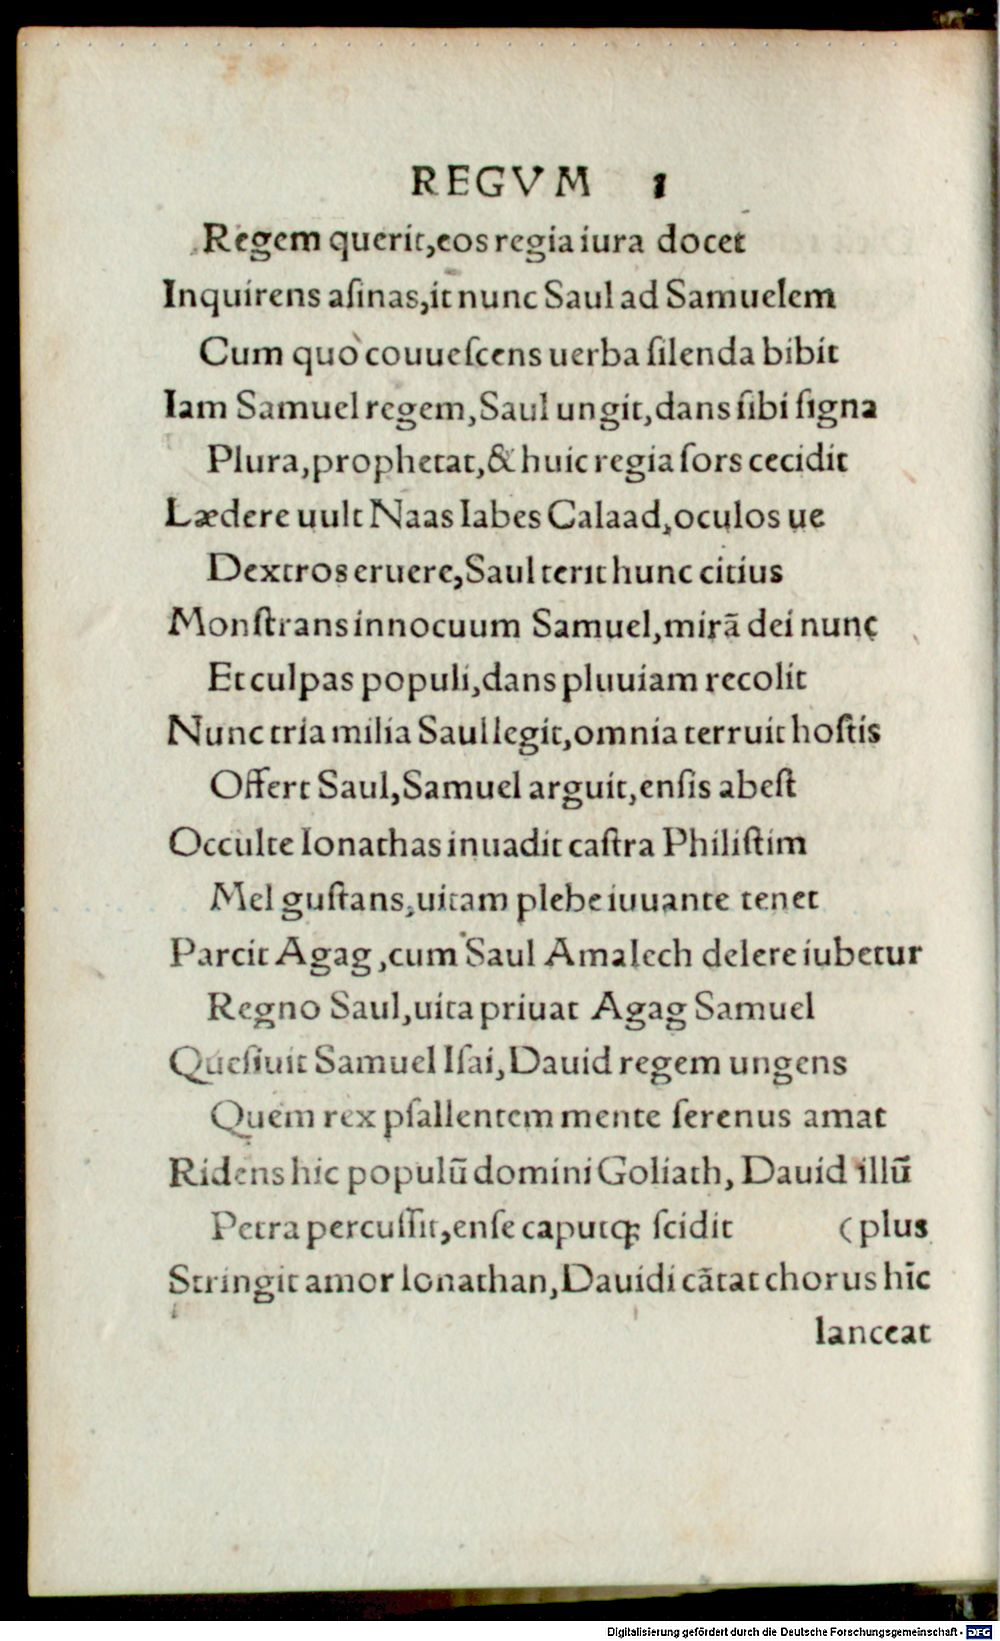 REGVM 1
Regem querit,eos regia iura docet
Inquirens aſinas,it nunc Saul ad Samuelem
Cum quo couueſcens uerba ſilenda bibit
Iam Samuel regem,Saul ungit,dans ſibi ſigna
Plura,prophetat,& huic regia ſors cecidit
Lædere uult Naas Iabes Galaad,oculos ue
Dextros eruere,Saul terit hunc citius
Monſtrans innocuum Samuel,mirā dei nunc
Et culpas populi,dans pluuiam recolit
Nunc tria milia Saul legit,omnia terruit hoſtis
Offert Saul,Samuel arguit,enſis abeſt
Occulte Ionathas inuadit caſtra Philiſtim
Mel guſtans,uitam plebe iuuante tenet
Parcit Agag,cum Saul Amalech delere iubetur
Regno Saul,uita priuat Agag Samuel
Queſiuit Samuel Iſai,Dauid regem ungens
Quem rex pſallentem mente ſerenus amat
Ridens hic populū domini Goliath, Dauid illū
Petra percuſſit,enſe caputqꝫ ſcidit (plus
Stringit amor Ionathan,Dauidi cātat chorus hīc
lanceat
Digitalisierung gefördert durch die Deutsche Forschungsgemeinschaft - DFG